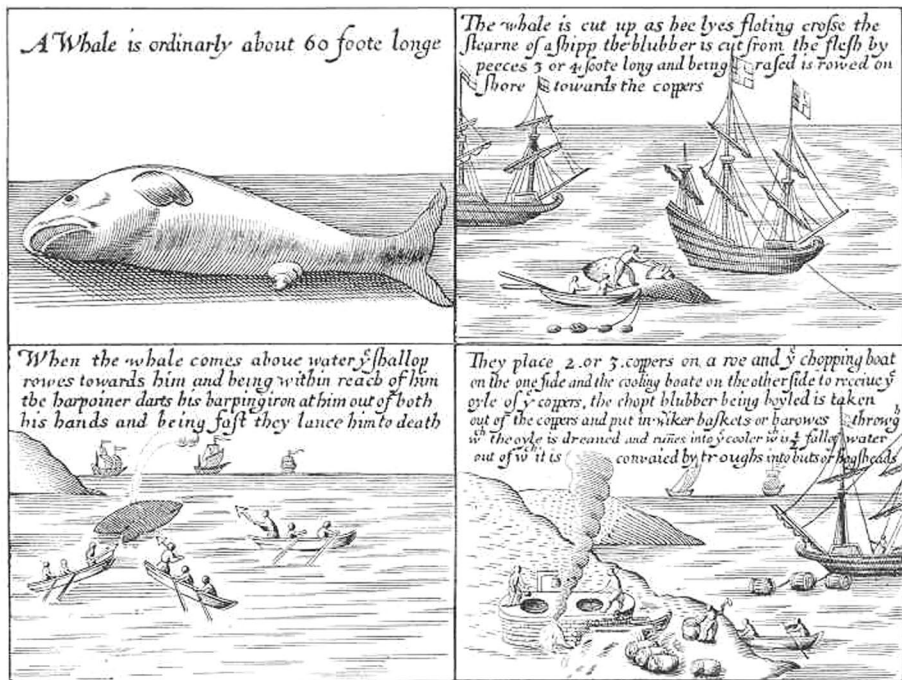 A Whale is ordinarly about 60 foote longe
The whale is cut up as hee lyes floting crosse the
stearne of a shipp the blubber is cut from the flesh by
peeces 3 or 4 foote long and being rased is rowed on
shore towards the coppers
When the whale comes aboue water yͤ shallop
rowes towards him and being within reach of him
the harpoiner darts his harping iron at him out of both
his hands and being fast they lance him to death
They place 2. or 3. coppers on a roe and yͤ chopping boat
on the one side and the cooling boate on the other side to receiue yͤ
oyle of yͤ coppers, the chopt blubber being boyled is taken
out of the coppers and put in wiker baskets or barowes throwgͪ
wͨͪ the oyle is dreaned and runes into yͤ cooler wͨͪ is ½ full of water
out of wͨͪ it is convaied by troughs into buts or hogsheads